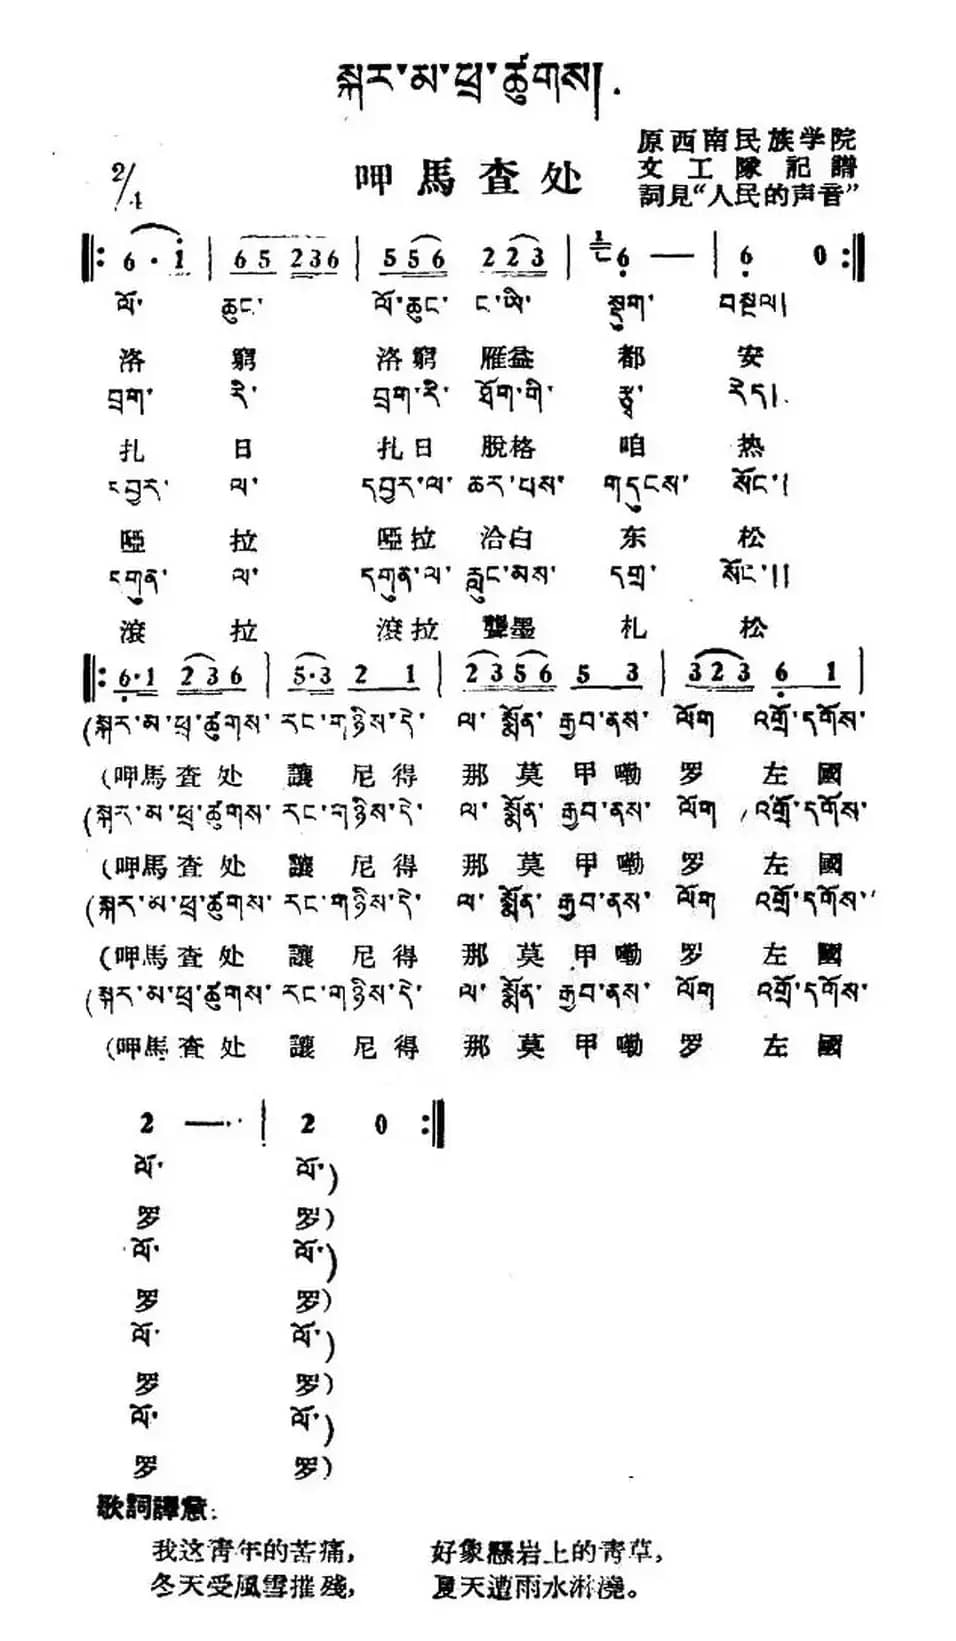 སྐར་མ་ཕྲ་ཚུགས།
原西南民族学院
呷馬査处
文工隊記譜
詞見“人民的声音”
2/4
‖: 6 · 1 | 6 5 2 3 6 | 5 5 6 2 2 3 | 6 — | 6 0 :‖
ལོ་ ཆུང་ ལོ་ཆུང་ ང་ཡི་ སྡུག་ བསྔལ།
洛 窮 洛窮 雁益 都 安
བྲག་ རི་ བྲག་རི་ ཐོག་གི་ རྩྭ་ རེད།
扎 日 扎日 脫格 咱 热
དབྱར་ ལ་ དབྱར་ལ་ ཆར་པས་ གདུངས་ སོང་།
啞 拉 啞拉 洽白 东 松
དགུན་ ལ་ དགུན་ལ་ རླུང་མས་ དགྲ་ སོང་།།
滾 拉 滾拉 龔墨 札 松
‖: 6·1 2 3 6 | 5·3 2 1 | 2 3 5 6 5 3 | 3 2 3 6 1 |
(སྐར་མ་ཕྲ་ཚུགས་ རང་གཉིས་དེ་ ལ་ སྨོན་ རྒྱབ་ནས་ ལོག འགྲོ་དགོས་
(呷馬査处 讓 尼得 那莫甲嘞 罗 左國
(སྐར་མ་ཕྲ་ཚུགས་ རང་གཉིས་དེ་ ལ་ སྨོན་ རྒྱབ་ནས་ ལོག འགྲོ་དགོས་
(呷馬査处 讓 尼得 那莫甲嘞 罗 左國
(སྐར་མ་ཕྲ་ཚུགས་ རང་གཉིས་དེ་ ལ་ སྨོན་ རྒྱབ་ནས་ ལོག འགྲོ་དགོས་
(呷馬査处 讓 尼得 那莫甲嘞 罗 左國
(སྐར་མ་ཕྲ་ཚུགས་ རང་གཉིས་དེ་ ལ་ སྨོན་ རྒྱབ་ནས་ ལོག འགྲོ་དགོས་
(呷馬査处 讓 尼得 那莫甲嘞 罗 左國
2 — | 2 0 :‖
ལོ་ ལོ་)
罗 罗)
ལོ་ ལོ་)
罗 罗)
ལོ་ ལོ་)
罗 罗)
ལོ་ ལོ་)
罗 罗)
歌詞譯意:
我这青年的苦痛, 好象懸岩上的青草,
冬天受風雪摧殘, 夏天遭雨水淋澆。